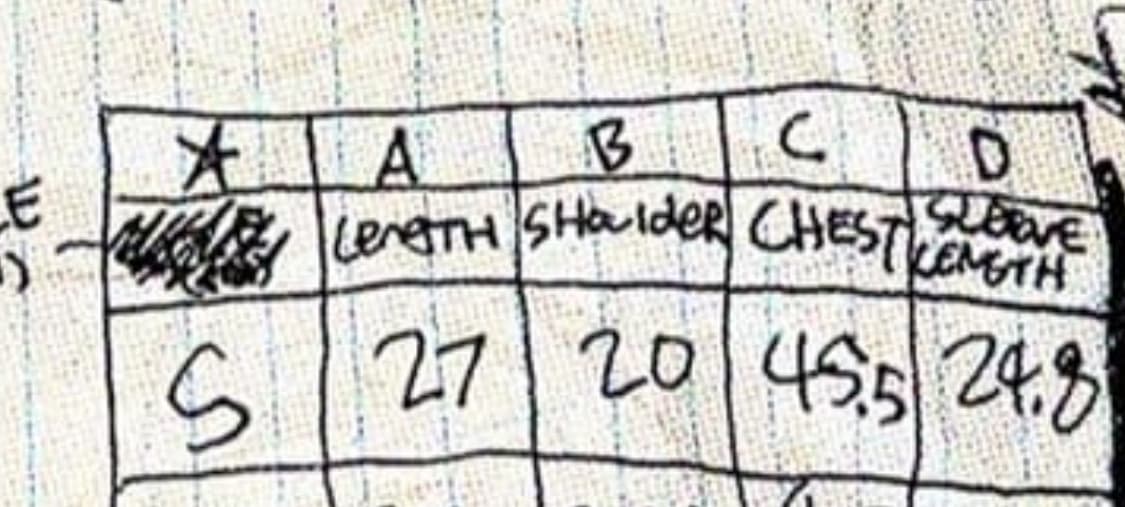 A B C D
LENGTH SHOULDER CHEST SLEEVE LENGTH
S 27 20 45.5 24.8